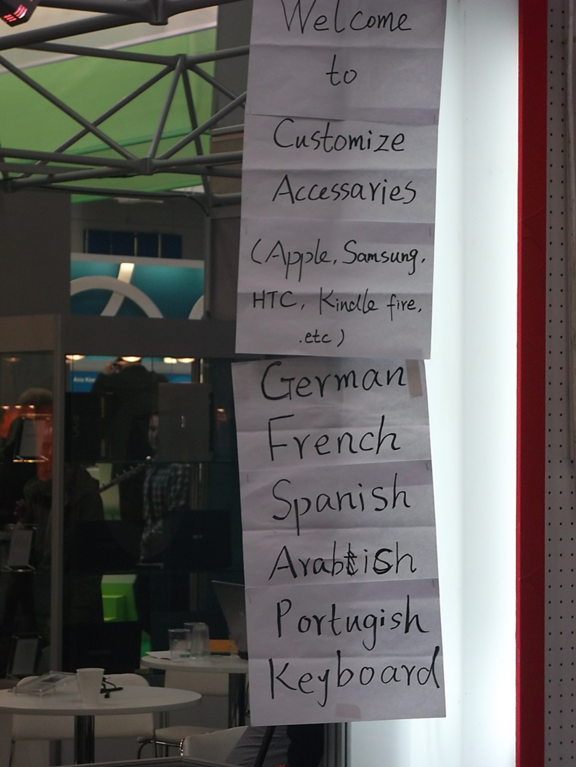 Welcome
to
Customize
Accessaries
(Apple, Samsung,
HTC, Kindle fire,
.etc)
German
French
Spanish
Arabtish
Portugish
Keyboard